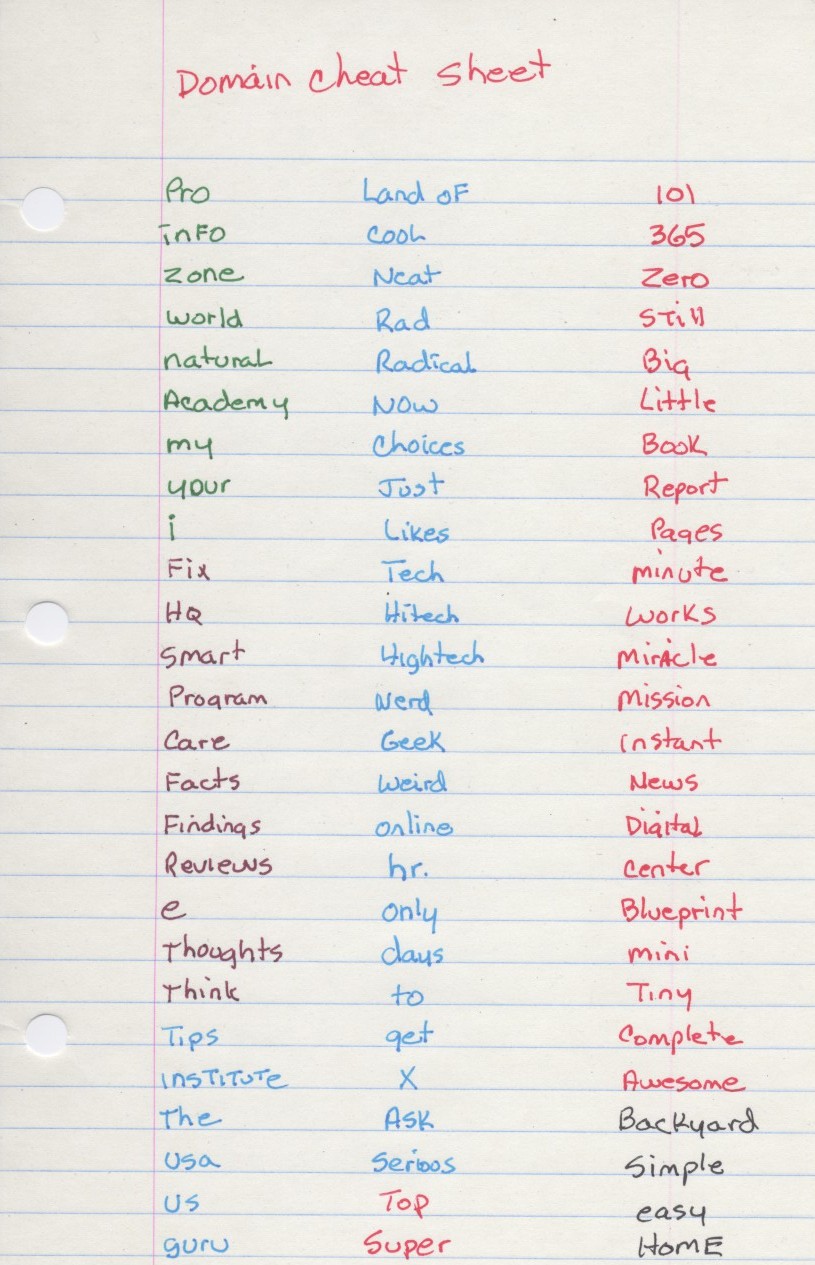 Domain cheat sheet
Pro Land oF 101
inFo cool 365
zone Neat Zero
world Rad Still
natural Radical Big
Academy NOW Little
my Choices Book
your Just Report
i Likes Pages
Fix Tech minute
HQ Hitech works
Smart Hightech MirAcle
Program Nerd Mission
Care Geek instant
Facts Weird News
Findings online Digital
Reviews hr. center
e only Blueprint
Thoughts days mini
Think to Tiny
Tips get Complete
insTiTuTe X Awesome
The Ask Backyard
Usa Serioos Simple
US Top easy
guru Super HomE